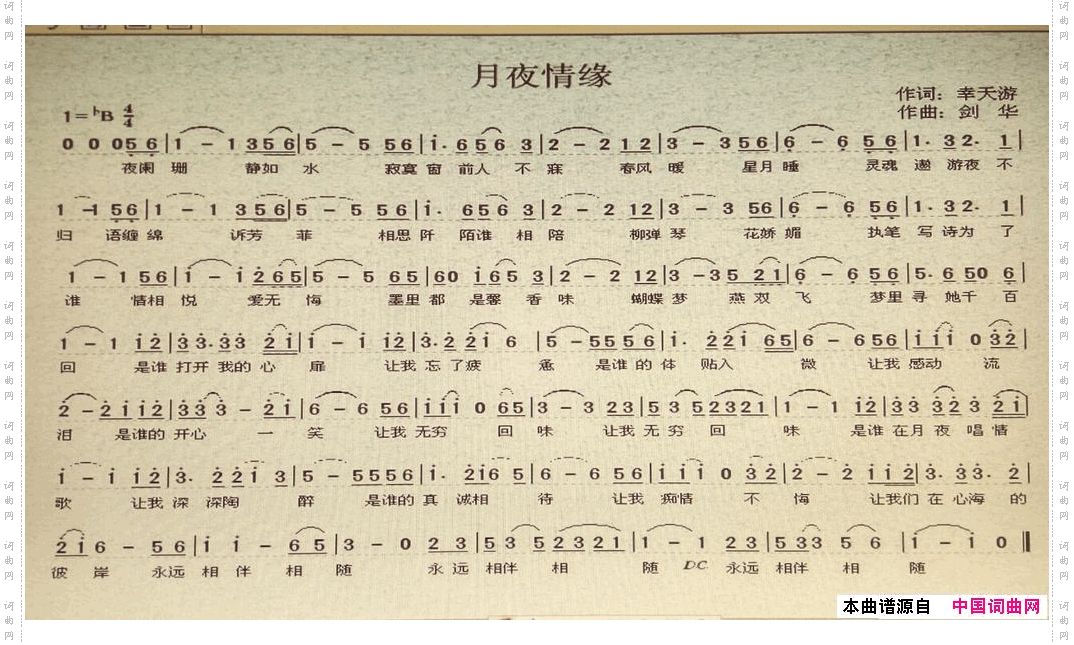 月夜情缘
作词：幸天游
1=♭B 4/4
作曲：剑 华
0 0 056 | 1 - 1 356 | 5 - 5 56 | i· 656 3 | 2 - 2 12 | 3 - 3 56 | 6 - 6 56 | 1· 32· 1 |
夜阑 珊 静如 水 寂寞 窗 前人 不 寐 春风 暖 星月 睡 灵魂 遨 游夜 不
1 -1 56 | 1 - 1 356 | 5 - 5 56 | i· 656 3 | 2 - 2 12 | 3 - 3 56 | 6 - 6 56 | 1· 32· 1 |
归 语缠 绵 诉芳 菲 相思 阡 陌谁 相 陪 柳弹 琴 花娇 媚 执笔 写 诗为 了
1 - 1 56 | i - i 265 | 5 - 5 65 | 60 i65 3 | 2 - 2 12 | 3 -35 21 | 6 - 6 56 | 5· 650 6 |
谁 情相 悦 爱无 悔 墨里 都 是馨 香 味 蝴蝶 梦 燕 双 飞 梦里 寻 她千 百
1 - 1 i2 | 33·33 2i | i - i i2 | 3·2 2i 6 | 5 -5556 | i· 22i 65 | 6 - 656 | iii 032 |
回 是谁 打开 我的 心 扉 让我 忘 了疲 惫 是谁 的 体 贴入 微 让我 感动 流
2 -2 ii2 | 333 - 2i | 6 - 6 56 | iii 0 65 | 3 - 3 23 | 53 52321 | 1 - 1 i2 | 33 32 3 2i |
泪 是谁的 开心 一 笑 让我 无穷 回 味 让我 无 穷 回 味 是谁 在月 夜 唱 情
i - i i2 | 3· 22i 3 | 5 - 5556 | i· 2i6 5 | 6 - 6 56 | iii 0 32 | 2 - 2 ii2 | 3· 33· 2 |
歌 让我 深 深陶 醉 是谁的 真 诚相 待 让我 痴情 不 悔 让我们 在 心海 的
2i6 - 56 | i i - 65 | 3 - 0 23 | 53 52321 | 1 - 1 23 | 533 5 6 | i - i 0 ‖
彼 岸 永远 相 伴 相 随 永 远 相伴 相 随 D.C. 永远 相伴 相 随
本曲谱源自 中国词曲网